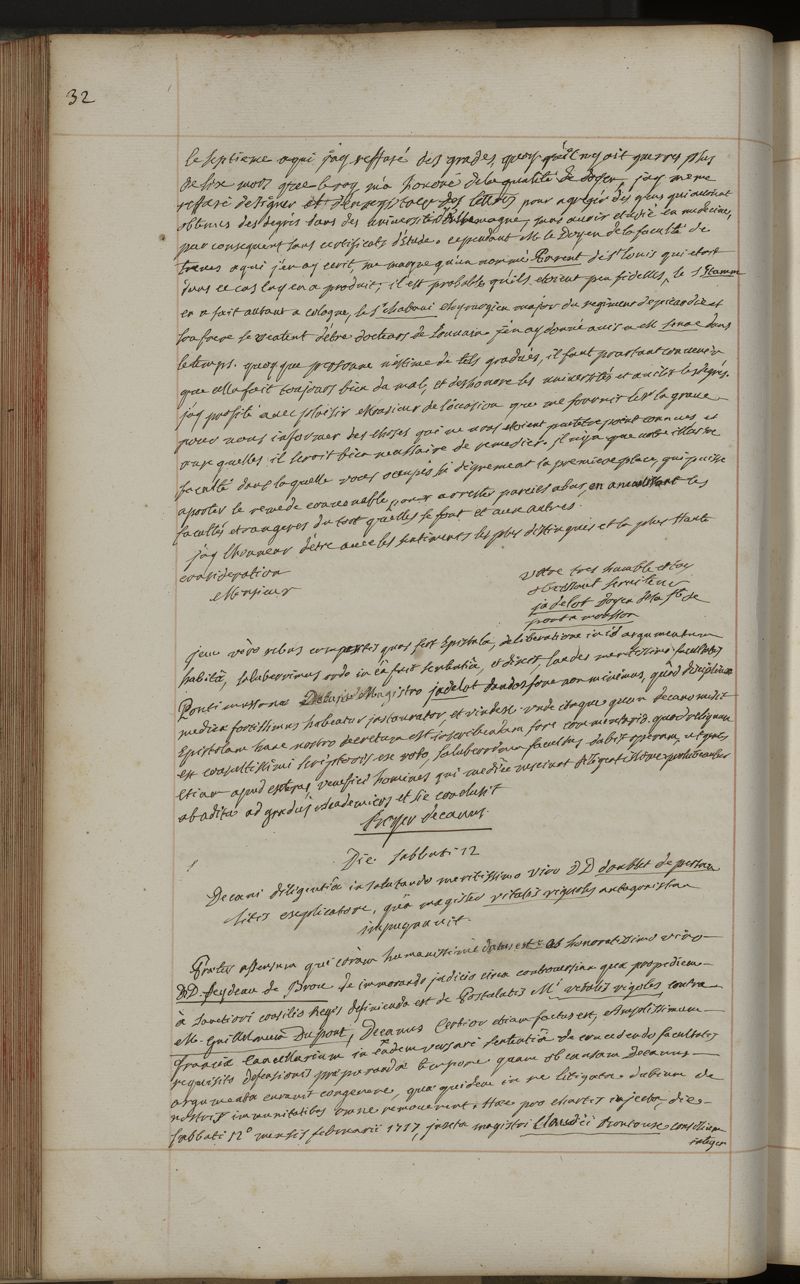 32
le septieme a qui j'ay reffusé des grades, quoy qu'il n'y ait guerres plus
de six mois que le roy m'a honoré de la qualité de doyen, j'ay meme
reffusé de signer et d'enregistrer des lettres pour agréger des gens qui avoient
obtenus des degrés dans des universités d'allemagne, sans avoir etudié en medecine,
par consequent sans certificats d'étude. cependant Mr le Doyen de la faculté de
treves a qui j'en ay ecrit, me marque qu'un nommé parent de St Louis qui etoit
dans ce cas luy en a produit; il est probable qu'ils etoient peu fidelles, le Sr
en a fait autant a cologne, le Sr chabani chyrurgien major du regiment de picardie et
son frere se vantent d'être docteurs de Louvain. j'en ay donné avis a Mr senac dans
le temps. quoy que personne n'estime de tels gradués, il faut pourtant convenir
que cela fait toujours bien du mal, et deshonore les universités et avilit les degrés.
j'ay profité avec plaisir Monsieur de l'occasion que me fournit le Sr la grave
pour vous informer des choses qui ne vous etoient peutêtre point connues et
aux quelles il seroit bien necessaire de remedier. il n'y a que votre illustre
faculté dans laquelle vous occupés si dignement la premiere place, qui puisse
aporter le remede convenable pour arrester pareils abus, en avertissant les
facultés etrangeres du tort qu'elles se font et aux autres.
j'ay l'honneur d'etre avec les sentiments les plus distingués et la plus haute
consideration
Monsieur
votre tres humble et tres
obeissant serviteur
jadelot doyen de la fté de
pont a mousson
jam vero rebus compertis quas fert Epistola, deliberatione in id argumentum
habitâ, saluberrimus ordo in eâ fuit sententiâ, et dixit, laudes meritissimo facultatis
Ponti mussonae Decano Magistro jadelot dandas fore non minimas, quòd disciplinae
medicae fortissimus habeatur instaurator, et vindex. unde itaque quam decano misit
Epistolam hanc nostro decretum est inscribendam fore commentariis. quod reliquum
est consultissimi scriptoris ex voto, saluberrima facultas dabit operam, ut ignes
etiam apud exteras, venefici homines qui medicè nesciunt diligentissime prohibeantur
ab aditu ad gradus academicos et sic conclusit
Boyer decanus.
Die sabbati 12
Decani diligentiâ in salutando meritissimo viro D D doublet de persan
litis explicatore, quâ magister vitalis vignoles antagonistam
impugnavit.
Gratus assensum qui coràm humanissimè datus est ab honoratissimo viro
DD. feydeau de Brou de immorando judicio circa controversiam quae propediem
à sanctiori consilio Regis definienda est de Postulatis Mi vitalis vignoles contra
M. Guillelmum Dupont, Decanus Certior etiam factus est, Amplissimum
franciae Cancellarium in eâdem versari sententiâ de concedendo facultatis
requisito defensionis praeparandae tempore quam ob causam Decanus
argumenta curavit congerere, quae quidem in re litigata dubium de
nostris immunitatibus omne removerent. Haec pro chartis injecta, dies
sabbati 12o mensis februarii 1757, juxta magistri Claudii Brontouse consilium
integer